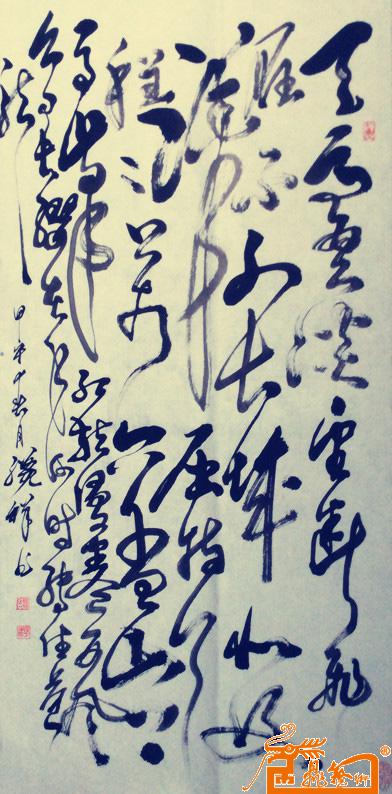 天高雲淡望断南飛
雁不到长城非好
漢屈指行
程二万六盘山上
高峰红旗漫卷西风
今日长缨在手何时缚住苍
龙
甲午